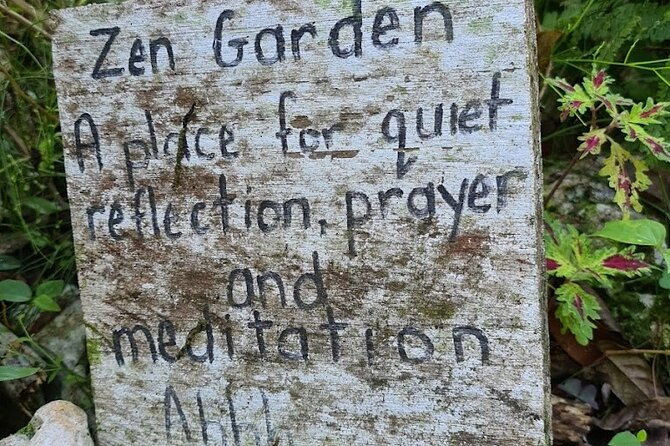 Zen Garden
A place for quiet
reflection, prayer
and
meditation
Ahhh